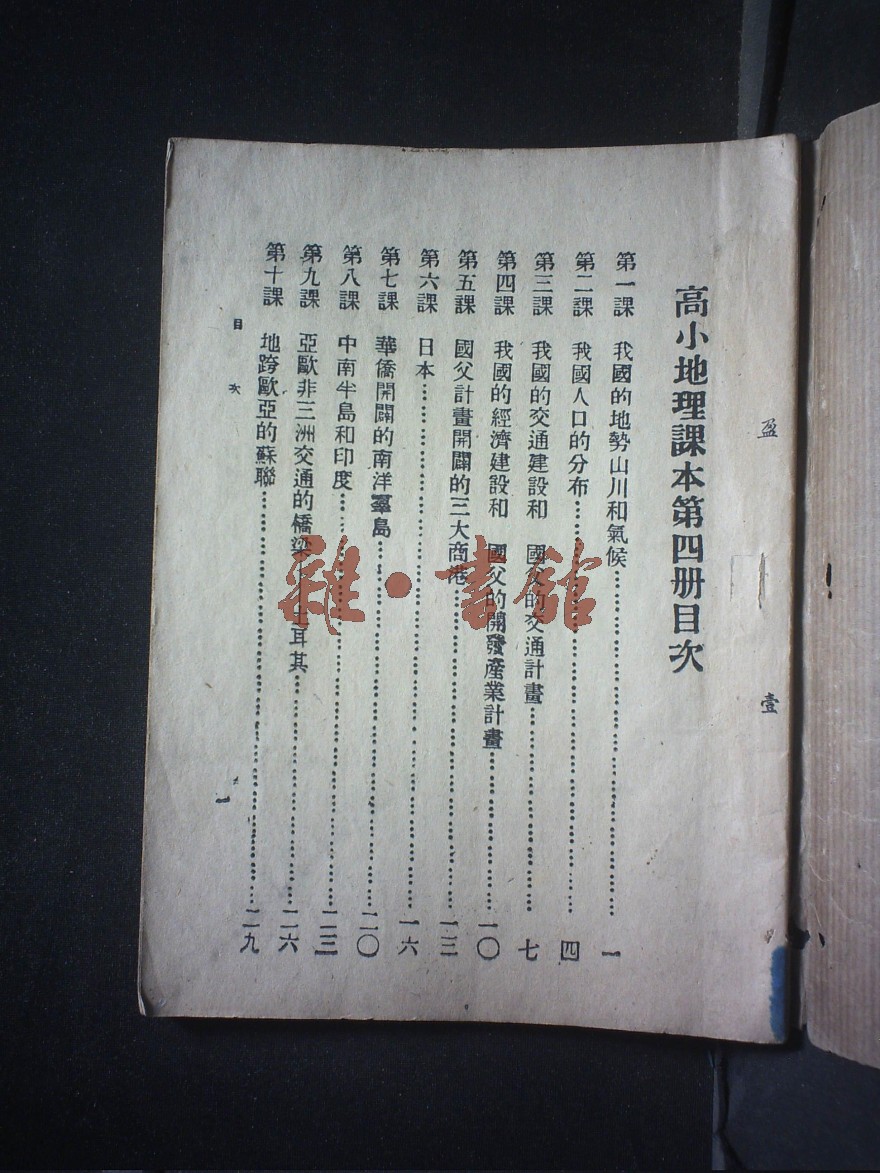 高小地理課本第四册目次
第一課　我國的地勢山川和氣候……一
第二課　我國人口的分布……四
第三課　我國的交通建設和　國父的交通計畫……七
第四課　我國的經濟建設和　國父的開發產業計畫……一〇
第五課　國父計畫開闢的三大商港……一三
第六課　日本……一六
第七課　華僑開闢的南洋羣島……二〇
第八課　中南半島和印度……二三
第九課　亞歐非三洲交通的橋梁——土耳其……二六
第十課　地跨歐亞的蘇聯……二九
目次
一
盈
壹
雜·書館